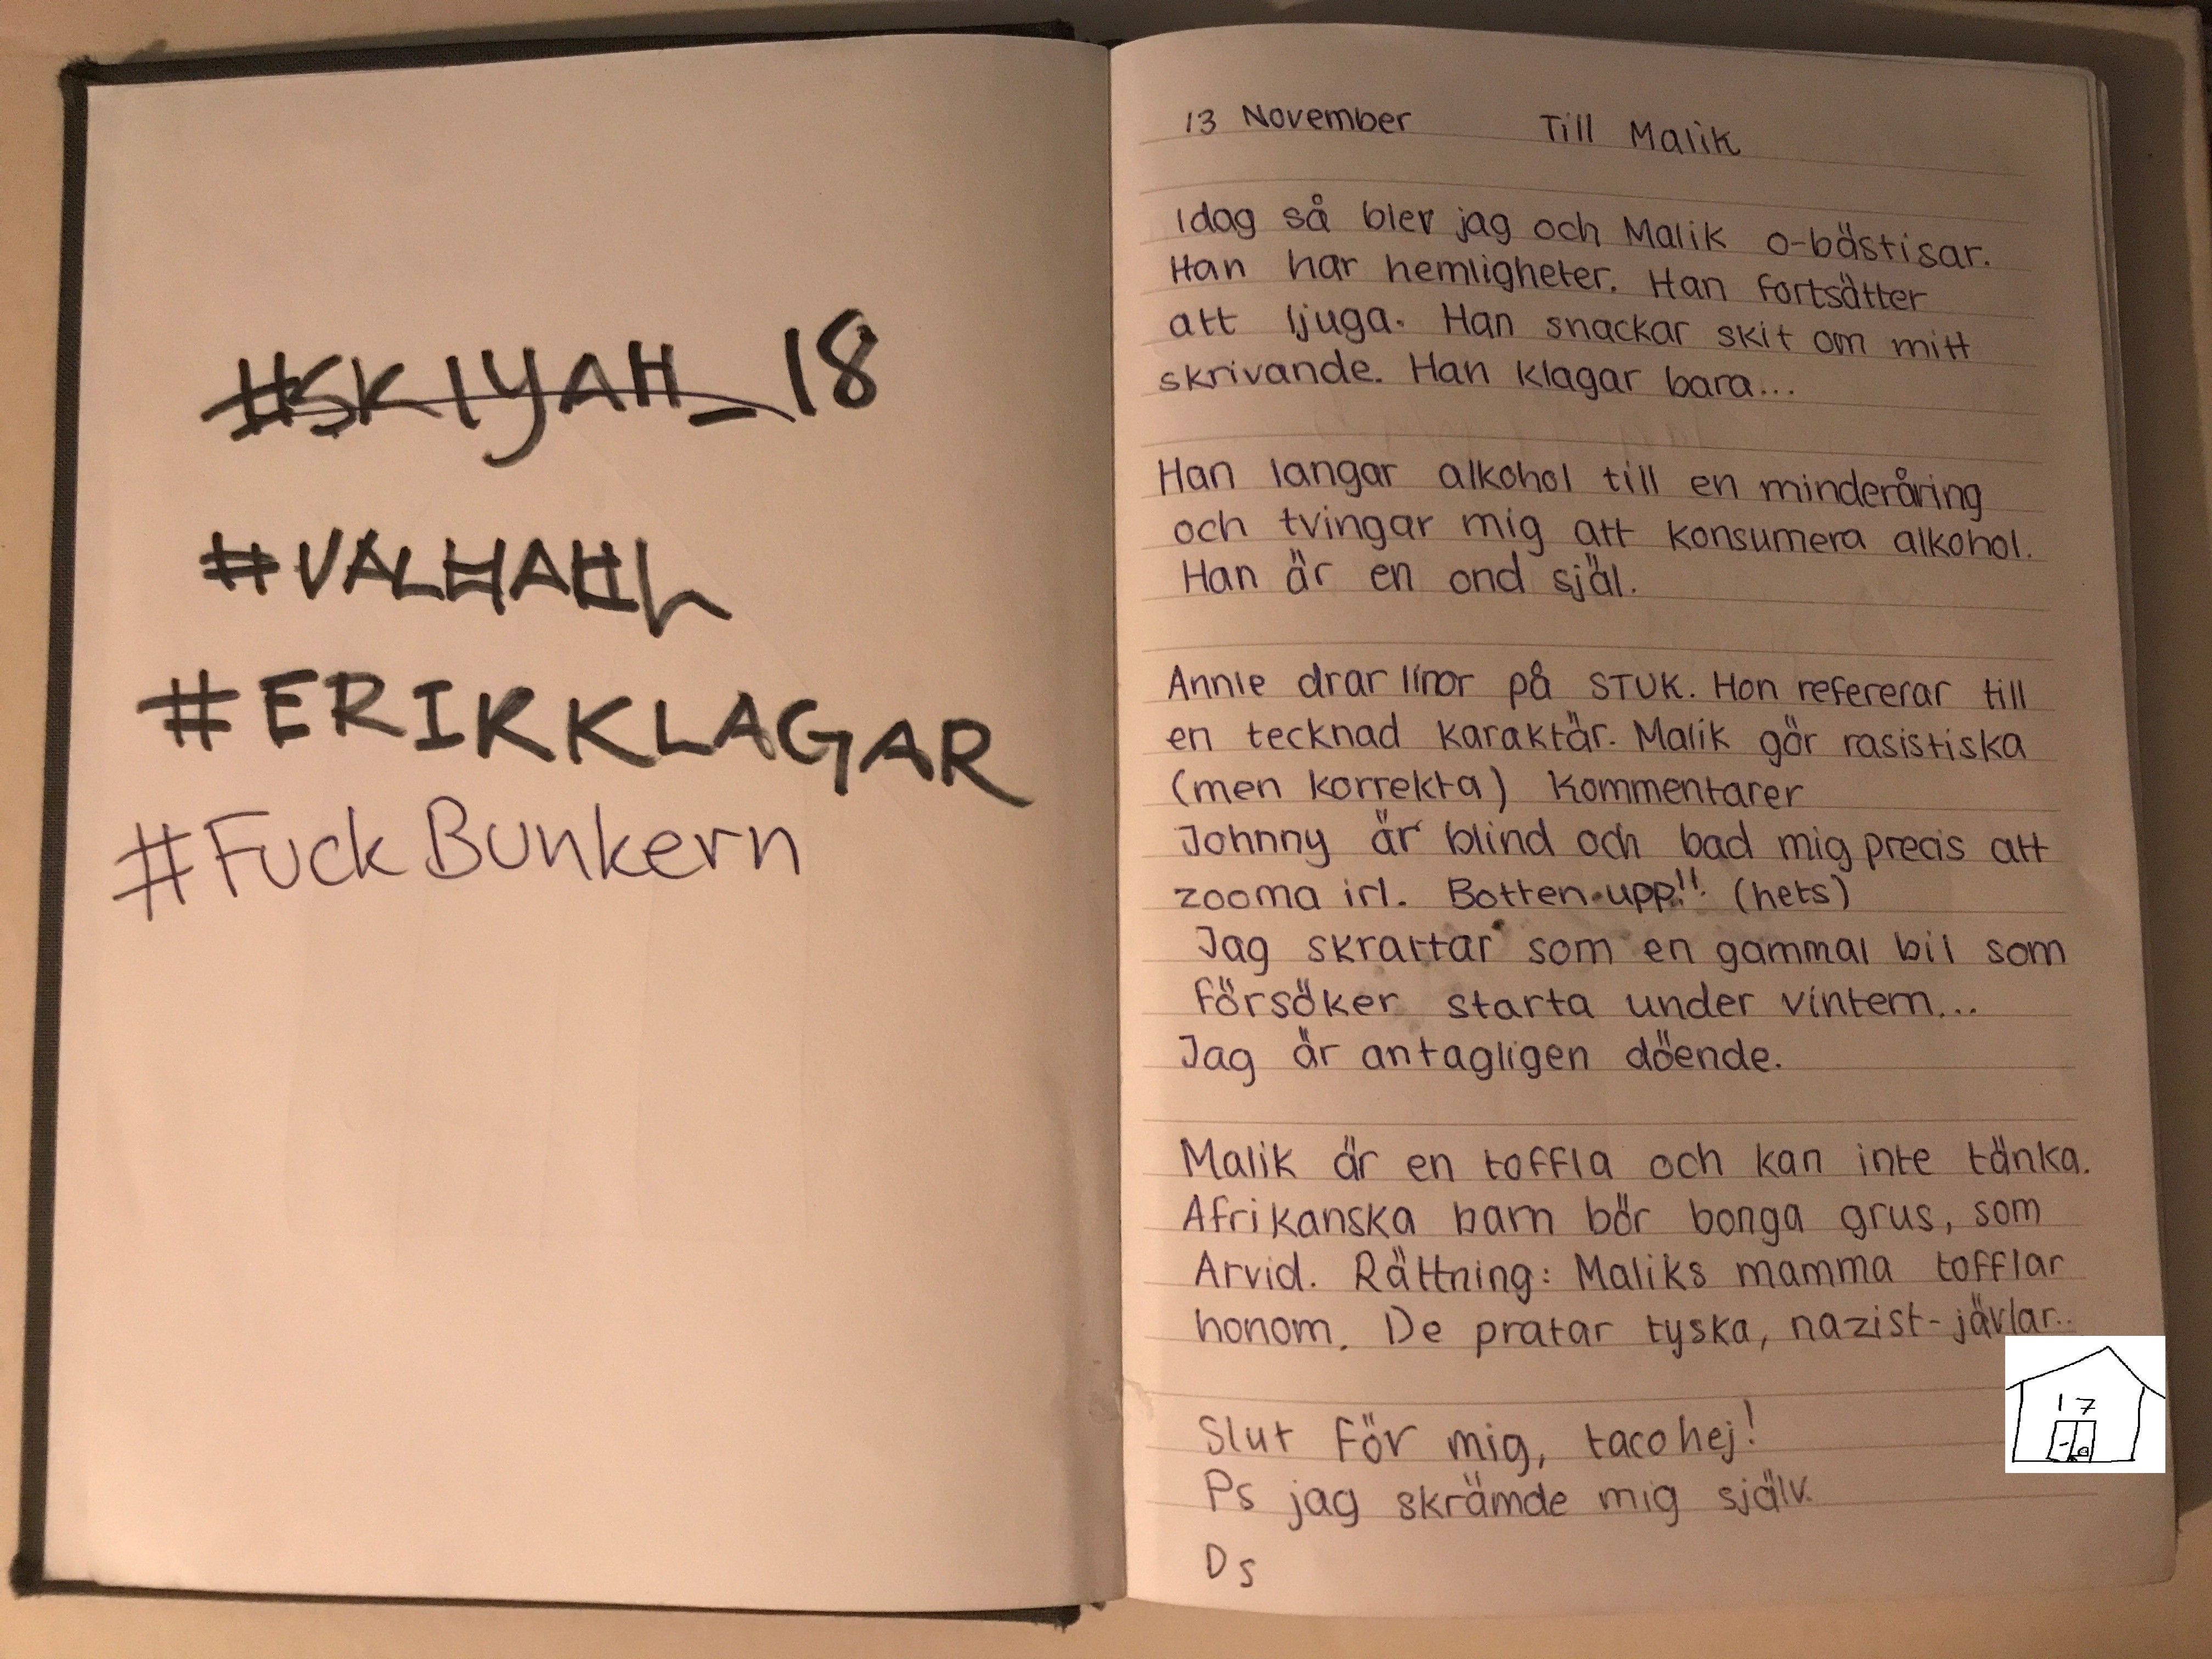 #SKIYAH_18
#VALHAHL
#ERIKKLAGAR
#FuckBunkern
13 November Till Malik
Idag så blev jag och Malik o-bästisar.
Han har hemligheter. Han fortsätter
att ljuga. Han snackar skit om mitt
skrivande. Han klagar bara...
Han langar alkohol till en minderåring
och tvingar mig att konsumera alkohol.
Han är en ond själ.
Annie drar linor på STUK. Hon refererar till
en tecknad karaktär. Malik gör rasistiska
(men korrekta) kommentarer
Johnny är blind och bad mig precis att
zooma irl. Botten upp!! (hets)
Jag skrattar som en gammal bil som
försöker starta under vintern...
Jag är antagligen döende.
Malik är en toffla och kan inte tänka.
Afrikanska barn bör bonga grus, som
Arvid. Rättning: Maliks mamma tofflar
honom. De pratar tyska, nazist-jävlar..
Slut för mig, tacohej!
Ps jag skrämde mig själv.
Ds
17